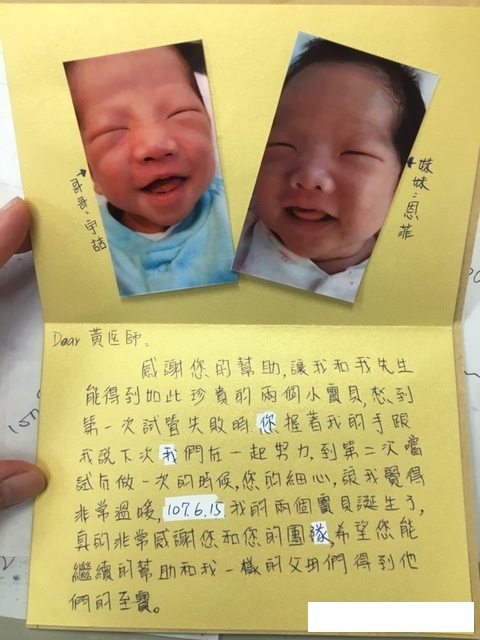 哥哥:宇喆
妹妹:恩菲
Dear 黃医師.
感謝您的幫助,讓我和我先生
能得到如此珍貴的兩個小寶貝,想到
第一次試管失敗時您握著我的手跟
我說下次我們在一起努力,到第二次嚐
試在做一次的時候,您的細心,讓我覺得
非常溫暖,107.6.15 我的兩個寶貝誕生了,
真的非常感謝您和您的團隊,希望您能
繼續的幫助和我一樣的父母們得到他
們的至寶。